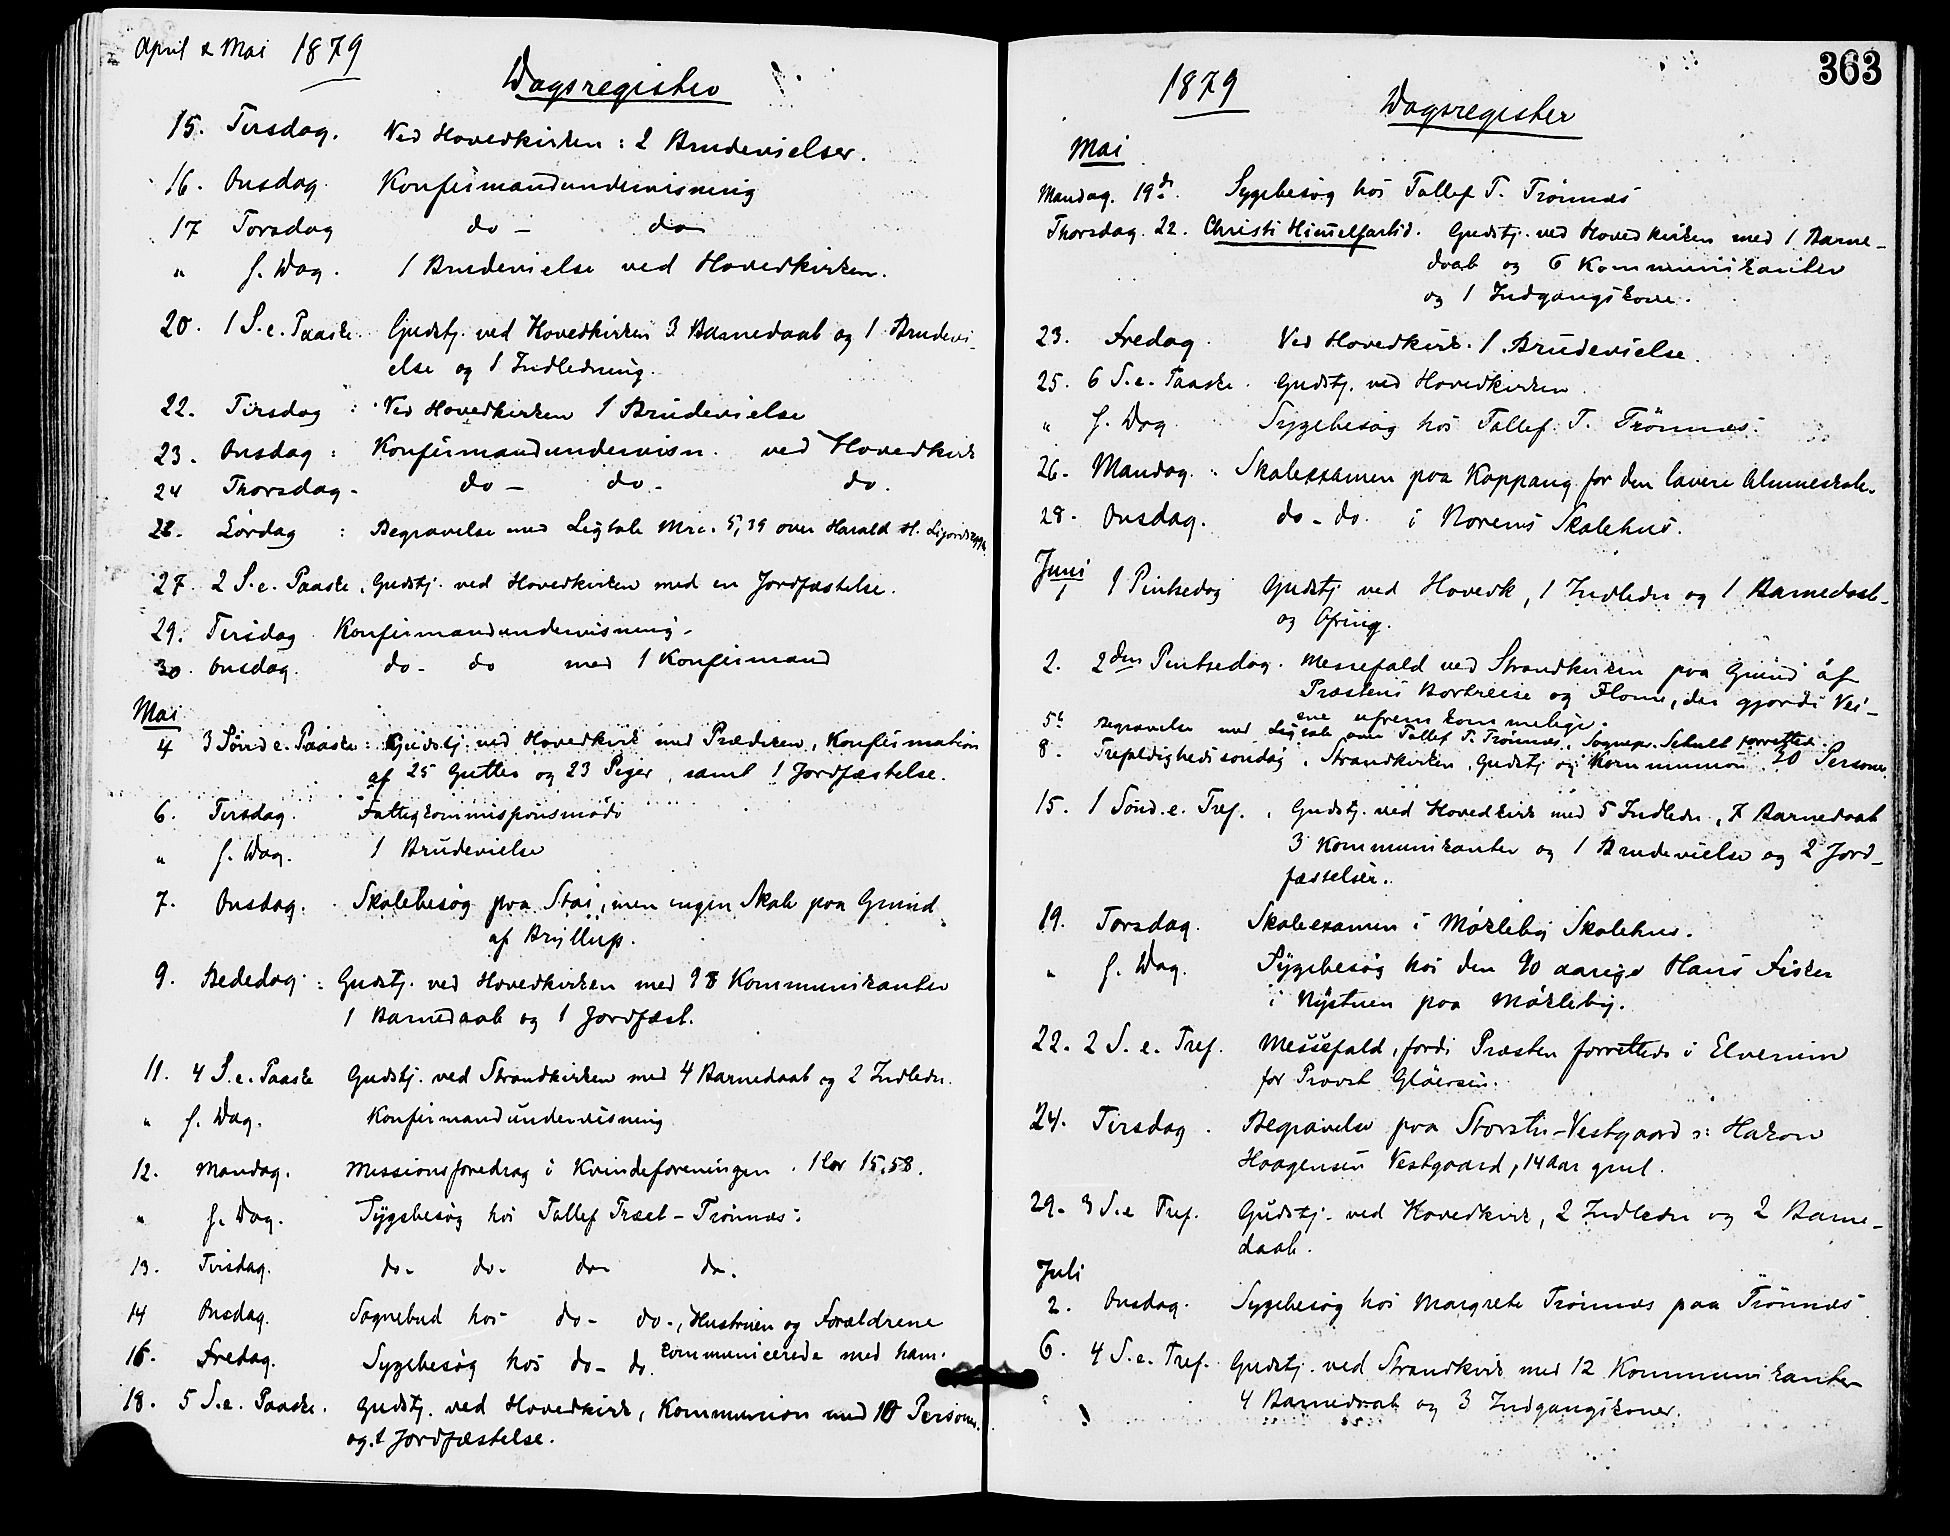 April & Mai 1879
Dagsregister
15. Tirsdag. Ved Hovedkirken: 2 Brudevielser.
16. Onsdag. Konfirmandundervisning
17 Torsdag do – do
" s. Dag. 1 Brudevielse ved Hovedkirken.
20. 1 S. e. Paaske. Gudstj. ved Hovedkirken 3 Barnedaab og 1 Brudevi-
else og 1 Indledning.
22. Tirsdag : Ved Hovedkirken 1 Brudevielse
23. Onsdag : Konfirmandundervisn. ved Hovedkirk
24 Thorsdag – do – do – do.
26. Lørdag : Begravelse med Ligtale Mrc. 5,39 over Harald H.
27. 2 S. e. Paaske. Gudstj. ved Hovedkirken med en Jordfæstelse.
29. Tirsdag. Konfirmandundervisning –
30. Onsdag. do – do med 1 Konfirmand
Mai
4 3 Sønd e. Paaske: Gudstj. ved Hovedkirk med Prædiken, Konfirmation
af 25 Gutter og 23 Piger, samt 1 Jordfæstelse.
6. Tirsdag. Fattigkommissionsmøde
" s. Dag. 1 Brudevielse
7. Onsdag. Skolebesøg paa Stai, men ingen Skole paa Grund
af Bryllup.
9. Bededag : Gudstj. ved Hovedkirken med 98 Kommunikanter
1 Barnedaab og 1 Jordfæst.
11. 4 S. e. Paaske Gudstj. ved Strandkirken med 4 Barnedaab og 2 Indledn.
" s. Dag. Konfirmandundervisning
12. Mandag. Missionsforedrag i Kvindeforeningen. 1 Cor 15,58.
" s. Dag. Sygebesøg hos Tallef Træet – Trønnes.
13. Tirsdag. do – do – do – do.
14 Onsdag. Sognebud hos do – do –, Hustruen og Forældrene
communicerede med ham.
16. Fredag. Sygebesøg hos do – do.
18. 5 S. e. Paaske. Gudstj. ved Hovedkirk, Kommunion med 10 Personer
og 1 Jordfæstelse.
363
1879
Dagsregister
Mai
Mandag. 19de. Sygebesøg hos Tallef T. Trønnes
Thorsdag. 22. Christi Himelfartsd. Gudstj. ved Hovedkirken med 1 Barne-
daab og 6 Kommunikanter
og 1 Indgangskone.
23. Fredag. Ved Hovedkirk. 1 Brudevielse.
25. 6 S. e. Paaske. Gudstj. ved Hovedkirken.
" s. Dag Sygebesøg hos Tallef T. Trønnes.
26. Mandag. Skoleexamen paa Koppang for den lavere Almueskole.
28. Onsdag. do – do. i Norems Skolehus.
Juni
1 1 Pintsedag Gudstj. ved Hovedk, 1 Indledn og 1 Barnedaab
og Ofring.
2. 2den Pintsedag. Messefald ved Strandkirken paa Grund af
Præstens Bortreise og Flom, der gjorde Vei-
ene ufremkommelige.
5te Begravelse med Ligtale over Tallef T. Trønnes. Sognepr. Schult forrettet.
8. Trefoldighedssøndag. Strandkirken, Gudstj og Kommunion 20 Personer
15. 1 Sønd. e. Tref. Gudstj. ved Hovedkirk med 5 Indledn, 7 Barnedaab
3 Kommunikanter og 1 Brudevielse og 2 Jord-
fæstelser.
19. Torsdag. Skoleexamen i Mørkeby Skolehus.
" s. Dag. Sygebesøg hos den 90 aarige Hans Fisker
i Nystuen paa Mørkeby.
22. 2 S. e. Tref. Messefald, fordi Præsten forrettede i Elverum
for Provst Gløersen.
24. Tirsdag. Begravelse paa Storstu-Vestgaard : Hakon
Haagensen Vestgaard, 14 Aar gml.
29. 3 S. e Tref. Gudstj. ved Hovedkirk, 2 Indledn og 2 Barne-
daab.
Juli
2. Onsdag. Sygebesøg hos Margrete Trønnes paa Trønnes
6. 4 S. e. Tref. Gudstj. ved Strandkirk med 12 Kommunikanter
4 Barnedaab og 3 Indgangskoner.